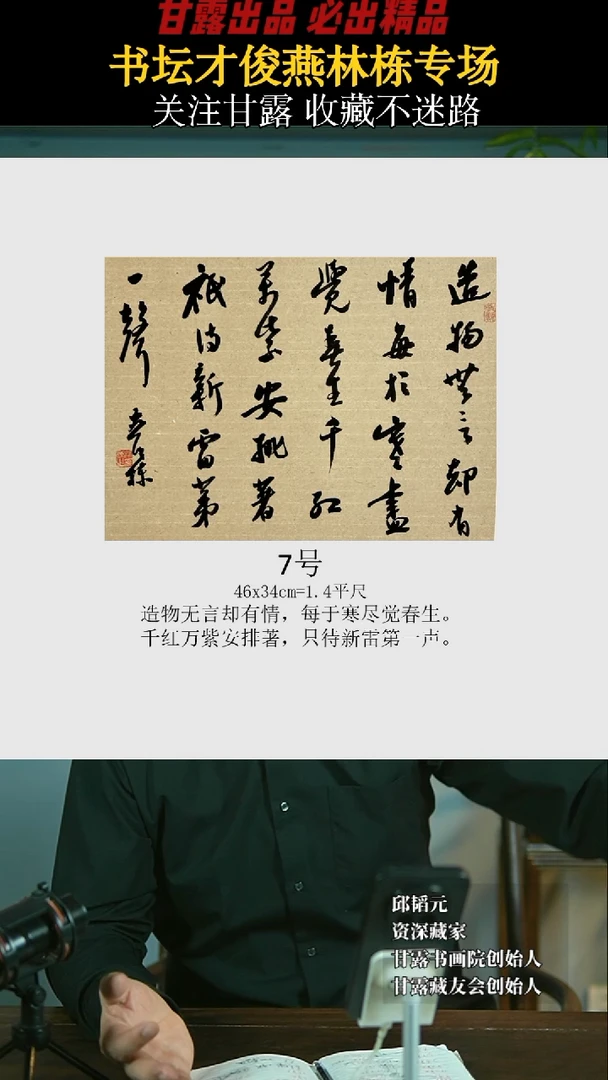 甘露出品 必出精品
书坛才俊燕林栋专场
关注甘露 收藏不迷路
造物無言却有
情每於寒盡
覺春生千红
萬紫安排著
祇待新雷第
一聲
7号
46x34cm=1.4平尺
造物无言却有情，每于寒尽觉春生。
千红万紫安排著，只待新雷第一声。
邱韬元
资深藏家
甘露书画院创始人
甘露藏友会创始人